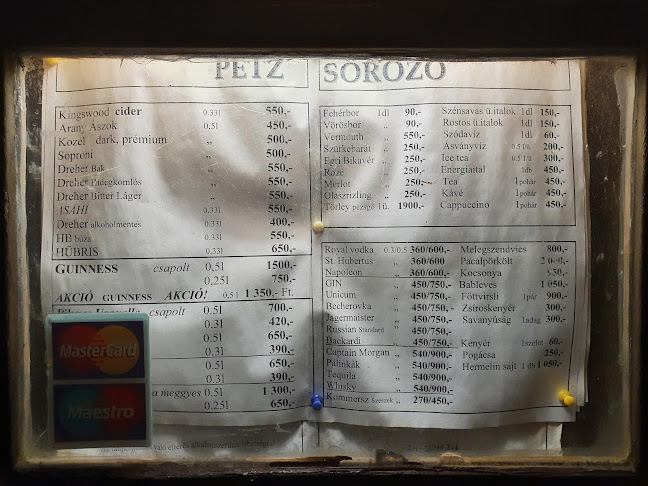 PETZ SÖRÖZŐ
Kingswood cider 0.33l 550,-
Arany Ászok 0.5l 450,-
Kozel dark, prémium „ 500,-
Soproni „ 500,-
Dreher Bak „ 550,-
Dreher Hidegkomlós „ 550,-
Dreher Bitter Láger „ 550,-
ASAHI 0.33l 550,-
Dreher alkoholmentes 0.33l 400,-
HB búza 0.33l 550,-
HÜBRIS 0,33l 650,-
GUINNESS csapolt 0,5l 1500,-
0,25l 750,-
AKCIÓ GUINNESS AKCIÓ! 0,5 l 1 350.- Ft.
csapolt 0,5l 700,-
0,3l 420,-
0,5l 650,-
0.3l 390,-
0,5l 650,-
0,3l 390,-
meggyes 0,5l 1 300,-
0,25l 650,-
MasterCard
Maestro
Fehérbor 1dl 90,-
Vörösbor „ 90,-
Vermouth „ 550,-
Szürkebarát „ 250,-
Egri Bikavér „ 250,-
Rozé „ 250,-
Merlot „ 250,-
Olaszrizling „ 250,-
Törley pezsgő 1ü. 1900,-
Szénsavas ü.italok 1dl 150,-
Rostos ü.italok 1dl 150,-
Szódavíz 1dl 60,-
Ásványvíz 0.5 l/ü 200,-
Ice tea 0.5 l/ü 300,-
Energiaital 1db 450,-
Tea 1pohár 450,-
Kávé 1pohár 450,-
Cappuccino 1pohár 450,-
Royal vodka 0.3/0.5 360/600,-
St. Hubertus „ 360/600
Napoleon „ 360/600,-
GIN „ 450/750,-
Unicum „ 450/750,-
Becherovka „ 450/750,-
Jägermaister „ 450/750,-
Russian Standard „ 450/750,-
Backardi „ 450/750,-
Captain Morgan „ 540/900,-
Pálinkák „ 540/900,-
Tequila „ 540/900,-
Whisky „ 540/900,-
Kommersz Szeszek „ 270/450,-
Melegszendvics 800,-
Pacalpörkölt
Kocsonya
Bableves 1 050,-
Főttvirsli 1pár 900,-
Zsíroskenyér 300,-
Savanyúság 1adag 300,-
Kenyér 1szelet 60,-
Pogácsa 250,-
Hermelin sajt 1 db 1 050,-